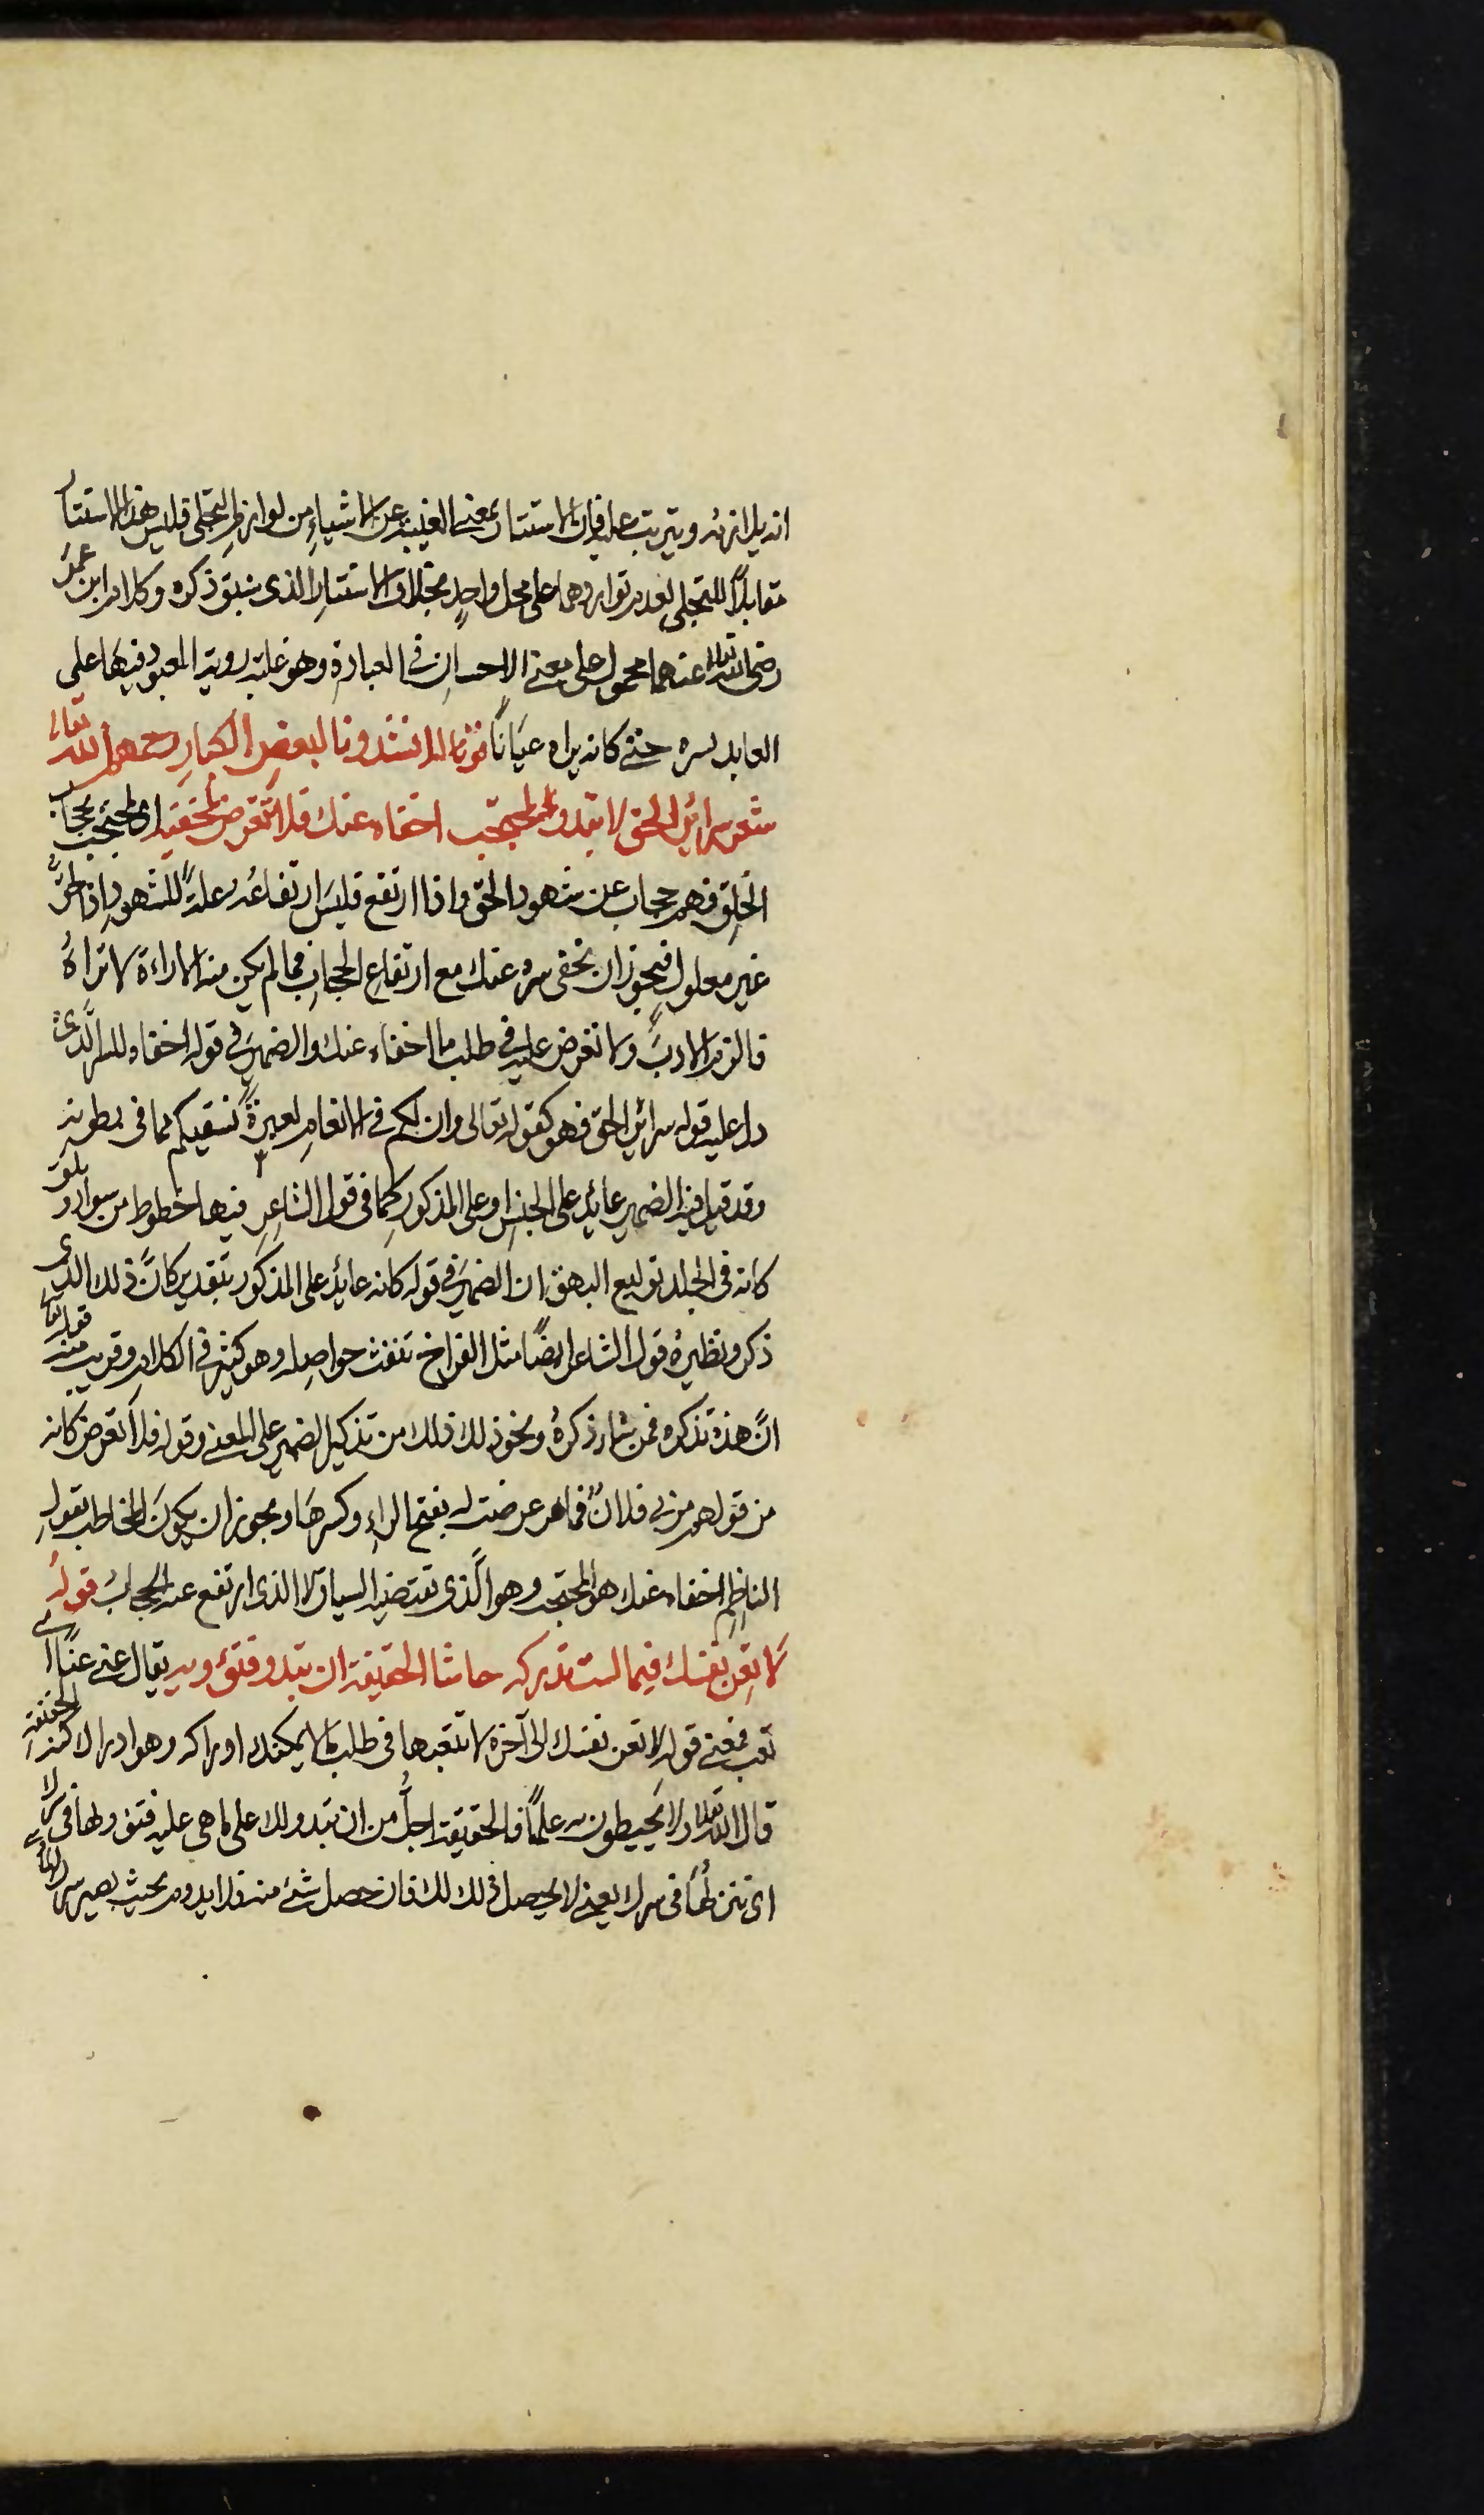 انه يلازمه ويترتب عليه فان الاستتار بمعنى الغيبة عن الاشياء من لوازم التجلى فليس هذا الاستتار
مقابلاً للتجلى لعدم تواردهما على محل واحدٍ بخلاف الاستتار الذى سبق ذكره وكلام ابن عمر
رضى الله تعالى عنهما محمول على معنى الاحسان فى العبادة وهو غلبة روية المعبود فيها على
العابد بسره حتى كانه يراه عيانًا قوله انشدونا لبعض الكبار رحمهم الله تعالى
شعر سرائر الحق لا تبدو لمحتجب اخفاه عنك فلا تعرض لمخفيه اى لمحتجب بحجاب
الخلق فهم حجاب عن شهود الحق واذا ارتفع فليس ارتفاعه علةً للشهود اذا
غير معلول فيجوز ان يخفى سره عنك مع ارتفاع الحجاب فما لم يكن منه الاراءة لا تراهُ
فالزم الادبَ ولا تعرض عليه فى طلب ما اخفاه عنك والضمير فى قوله اخفاه للسر الذى
دل عليه قوله سرائر الحق فهو كقوله تعالى وان لكم فى الانعام لعبرةً نسقيكم مما فى بطونه
وقد قيل فيه الضمير عائد على الجنس او على المذكور كما فى قول الشاعر فيها خطوط من سواد وبلق
كانه فى الجلد توليع البهق ان الضمير فى قوله كانه عائد على المذكور بتقدير كانّ ذلك الذى
ذكر ونظيرهُ قول الشاعر ايضًا مثل الفراخ نتفت حواصله وهو كثير فى الكلام وقريب منه قوله تعالى
انّ هذه تذكره فمن شاء ذكرهُ ونحو ذلك من تذكير الضمير على المعنى وقوله فلا تعرض كانه
من قولهم مر بى فلانٌ فما عرضت له بفتح الراءِ وكسرها ويجوز ان يكونَ المخاطب بقول
الناظم اخفاه عنك هو المحتجب وهو الذى تقتضيه السياق لا الذى ارتفع عنه الحجابُ قوله
لا تعن نفسك فيما لست تدركه حاشا الحقيقة ان تبدو فتؤويه يقال عنى عنًا اى
تعب فمعنى قوله لا تعن نفسك الى آخره لا تتعبها فى طلب ما لا يمكنك ادراكه وهو ادراك كنه الحقيقة
قال الله تعالى ولا يحيطون به علمًا فالحقيقة اجلُّ من ان تبدو لك على ما هى عليه
اى تنزلها فى سرك يعنى لا يحصل ذلك لك فان حصل شئ منه فلا يدوم بحيث يصير سرك